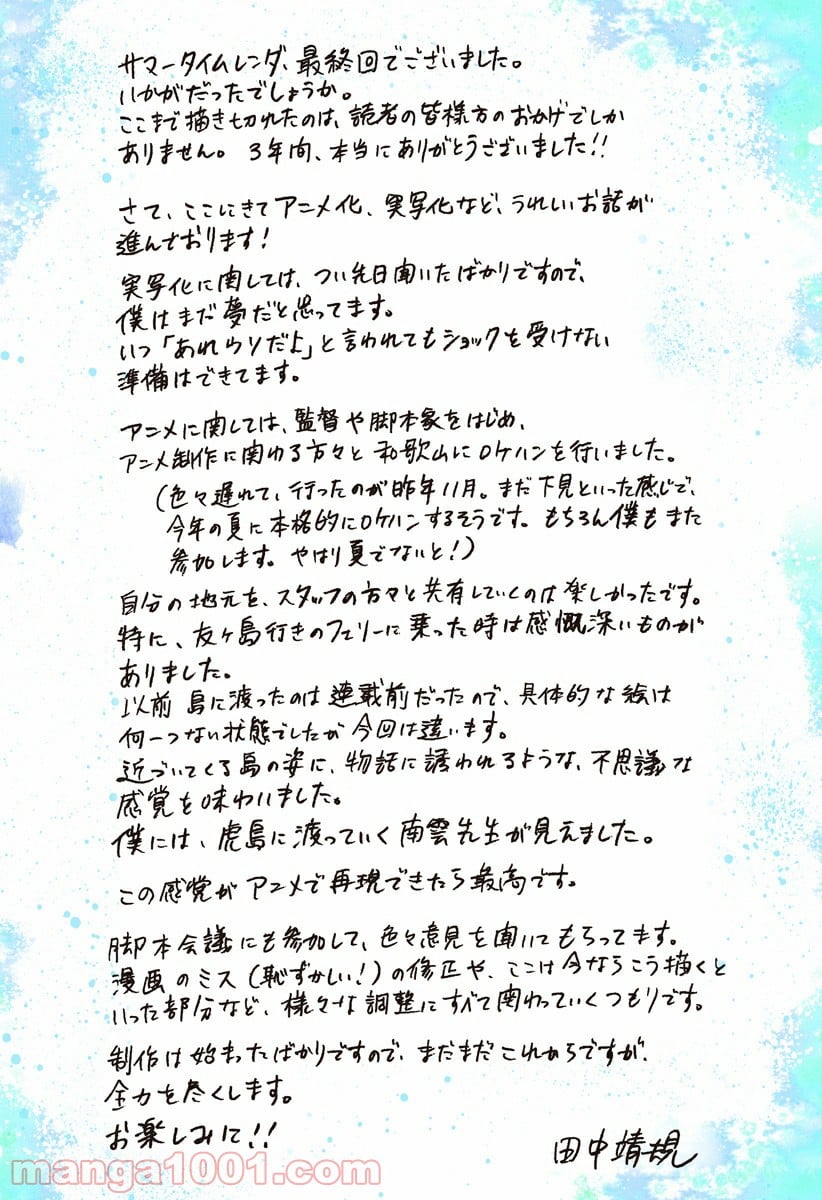 サマータイムレンダ、最終回でございました。
いかがだったでしょうか。
ここまで描き切れたのは、読者の皆様方のおかげでしか
ありません。3年間、本当にありがとうございました!!
さて、ここにきてアニメ化、実写化など、うれしいお話が
進んでおります!
実写化に関しては、つい先日聞いたばかりですので、
僕はまだ夢だと思ってます。
いつ「あれウソだよ」と言われてもショックを受けない
準備はできてます。
アニメに関しては、監督や脚本家をはじめ、
アニメ制作に関わる方々と和歌山にロケハンを行いました。
(色々遅れて、行ったのが昨年11月。まだ下見といった感じで、
今年の夏に本格的にロケハンするそうです。もちろん僕もまた
参加します。やはり夏でないと!)
自分の地元を、スタッフの方々と共有していくのは楽しかったです。
特に、友ヶ島行きのフェリーに乗った時は感慨深いものが
ありました。
以前島に渡ったのは連載前だったので、具体的な絵は
何一つない状態でしたが今回は違います。
近づいてくる島の姿に、物語に誘われるような、不思議な
感覚を味わいました。
僕には、虎島に渡っていく南雲先生が見えました。
この感覚がアニメで再現できたら最高です。
脚本会議にも参加して、色々意見を聞いてもらってます。
漫画のミス(恥ずかしい!)の修正や、ここは今ならこう描くと
いった部分など、様々な調整にすべて関わっていくつもりです。
制作は始まったばかりですので、まだまだこれからですが、
全力を尽くします。
お楽しみに!!
田中靖規
manga1001.com